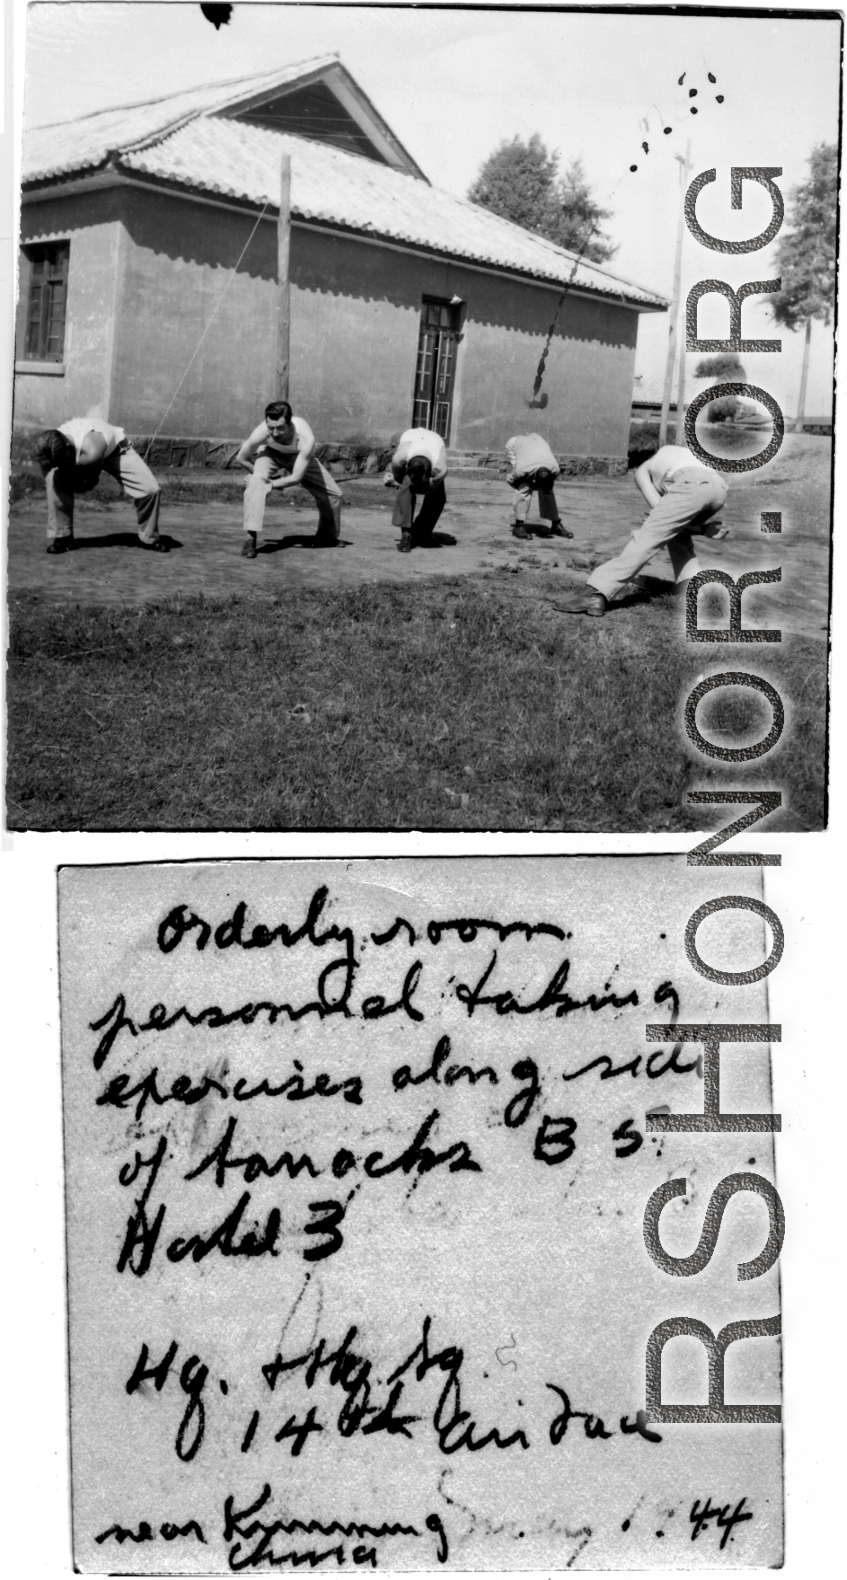 Orderly room
personnel taking
exercises along side
of barracks B 5.
Hostel 3
Hq. & Hq. Sq.
14th Air Force
near Kunming 44
China
RSHONOR.ORG